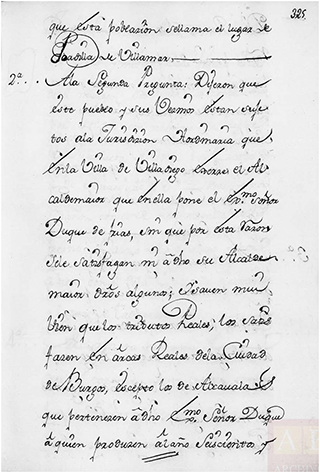 325
que esta poblazion sellama el lugar de
Guadilla de Villamar,
2ª. Ala Segunda Pregunta: Dijeron que
este pueblo y sus Vezinos estan suje
tos ala Jurisdizion Hordinaria que
enla Villa de Villadiego exerze el Al
caldemaior que enella pone el exmo Señor
Duque de frias, sin que por esta razon
sele satisfagan ni a dho su Alcalde
maior dros algunos; Isauen mui
bien que los tributos Reales, los satis
fazen en arcas Reales dela Ciudad
de Burgos, eszepto los de Alcauala
que pertenezen a dho exmo Sr. Duque
a quien produzen al año Seiscientos y